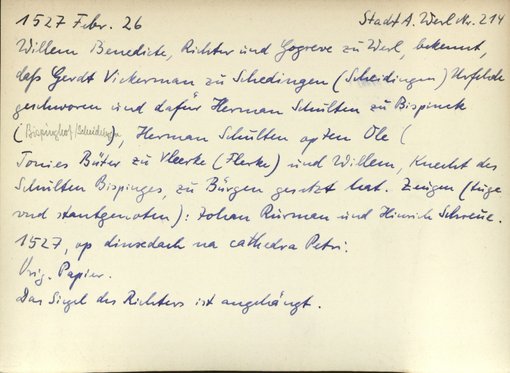 1527 Febr. 26 Stadt A. Werl Nr. 214
Willem Benedicte, Richter und Gogreve zu Werl, bekennt,
daß Gerdt Vickerman zu Schedingen (Scheidingen) Urfehde
geschworen und dafür Herman Schulten zu Bispinck
(Bispinghof/Scheidingen), Herman Schulten opten Ole (
Tonies Büter zu Vlerke (Flerke) und Willem, Knecht des
Schulten Bispinges, zu Bürgen gesetzt hat. Zeugen (tuge
und stantgenoten): Johan Ruirman und Hinrich Schreue.
1527, op dinsedach na cathedra Petri.
Orig. Papier.
Das Siegel des Richters ist angehängt.